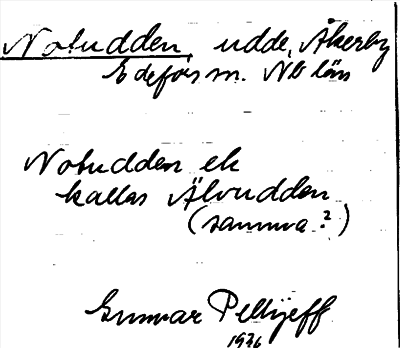 Notudden, udde, Åkerby
Edefors sn. Nb län
Notudden ek
kallas Älvudden
(samma?)
Gunnar Pellijeff
1936